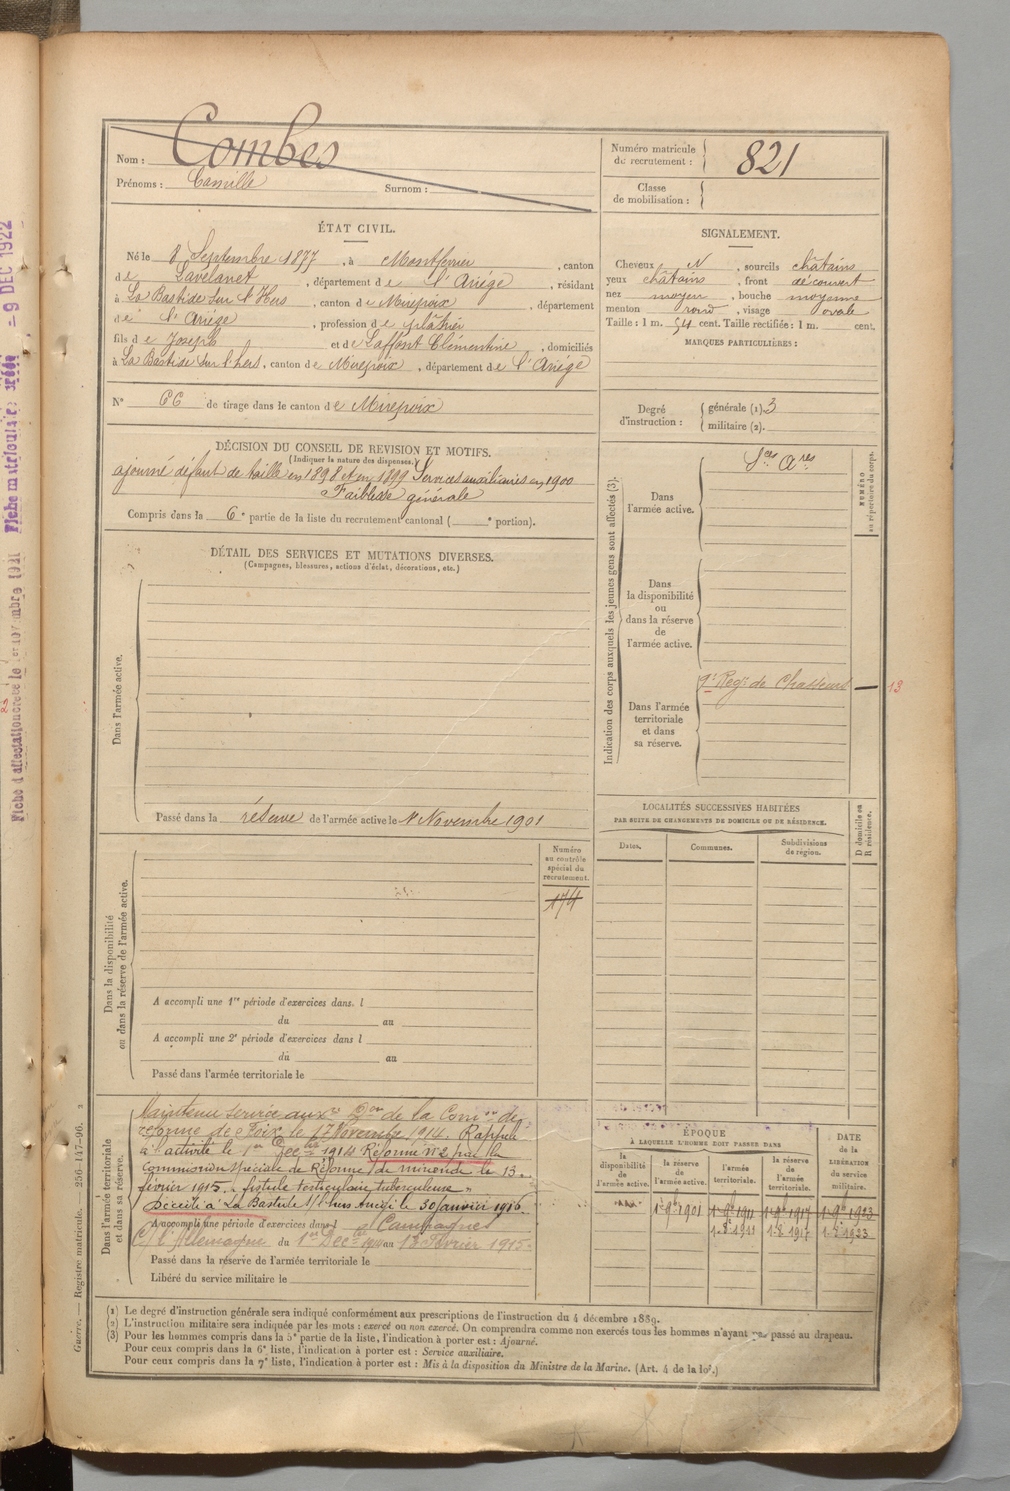 Nom : Combes
Prénoms : Camille Surnom :
Numéro matricule
du recrutement : 821
Classe
de mobilisation :
ÉTAT CIVIL.
Né le 8 Septembre 1877, à Montferrier, canton
de Lavelanet, département de l'Ariége, résidant
à La Bastide sur l'Hers, canton de Mirepoix, département
de l'Ariége, profession de plâtrier
fils de Joseph et de Laffont Clémentine, domiciliés
à La Bastide sur l'hers, canton de Mirepoix, département de l'Ariége
N° 66 de tirage dans le canton de Mirepoix
SIGNALEMENT.
Cheveux N, sourcils châtains
yeux châtains, front découvert
nez moyen, bouche moyenne
menton rond, visage ovale
Taille : 1 m. 54 cent. Taille rectifiée : 1 m. cent.
MARQUES PARTICULIÈRES :
Degré
d'instruction :
générale (1). 3
militaire (2).
DÉCISION DU CONSEIL DE REVISION ET MOTIFS.
(Indiquer la nature des dispenses.)
ajourné défaut de taille en 1898 et en 1899 Services auxiliaires en 1900
Faiblesse générale
Compris dans la 6e partie de la liste du recrutement cantonal ( e portion).
DÉTAIL DES SERVICES ET MUTATIONS DIVERSES.
(Campagnes, blessures, actions d'éclat, décorations, etc.)
Dans l'armée active.
Passé dans la réserve de l'armée active le 1er Novembre 1901
Indication des corps auxquels les jeunes gens sont affectés (3).
Dans
l'armée active.
Sces Ares
NUMÉRO
au répertoire du corps.
Dans
la disponibilité
ou
dans la réserve
de
l'armée active.
Dans l'armée
territoriale
et dans
sa réserve.
9e Regt de Chasseurs — 13
LOCALITÉS SUCCESSIVES HABITÉES
PAR SUITE DE CHANGEMENTS DE DOMICILE OU DE RÉSIDENCE.
Dates.
Communes.
Subdivisions
de région.
D domicile ou
R résidence.
Dans la disponibilité
ou dans la réserve de l'armée active.
Numéro
au contrôle
spécial du
recrutement.
174
A accompli une 1re période d'exercices dans. l
du au
A accompli une 2e période d'exercices dans l
du au
Passé dans l'armée territoriale le
Dans l'armée territoriale
et dans sa réserve.
Maintenu service auxre Don de la Comon de
réforme de Foix le 17 Novembre 1914. Rappelé
à l'activité le 1er Decbre 1914 Réformé N°2 par la
Commission spéciale de Réforme de mirande le 13
février 1915. "fistule testiculaire tuberculeuse"
Décédé à La Bastide s/l'hers Ariège le 30 janvier 1916.
A accompli une période d'exercices dans l Campagnes
C/ l'Allemagne du 1er Decbre 1914 au 13 Février 1915.
Passé dans la réserve de l'armée territoriale le
Libéré du service militaire le
ÉPOQUE
À LAQUELLE L'HOMME DOIT PASSER DANS
la
disponibilité
de
l'armée active.
la réserve
de
l'armée active.
l'armée
territoriale.
la réserve
de
l'armée
territoriale.
DATE
de la
LIBÉRATION
du service
militaire.
1 9bre 1901 1 9bre 1911 1 9bre 1917 1 9bre 1923
1.8.1911 1.8.1917 1.8.1923
(1) Le degré d'instruction générale sera indiqué conformément aux prescriptions de l'instruction du 4 décembre 1889.
(2) L'instruction militaire sera indiquée par les mots : exercé ou non exercé. On comprendra comme non exercés tous les hommes n'ayant pas passé au drapeau.
(3) Pour les hommes compris dans la 5e partie de la liste, l'indication à porter est : Ajourné.
Pour ceux compris dans la 6e liste, l'indication à porter est : Service auxiliaire.
Pour ceux compris dans la 7e liste, l'indication à porter est : Mis à la disposition du Ministre de la Marine. (Art. 4 de la loi.)
Guerre. — Registre matricule. — 256-147-96. 2
Fiche matriculaire créée - 9 DEC 1922